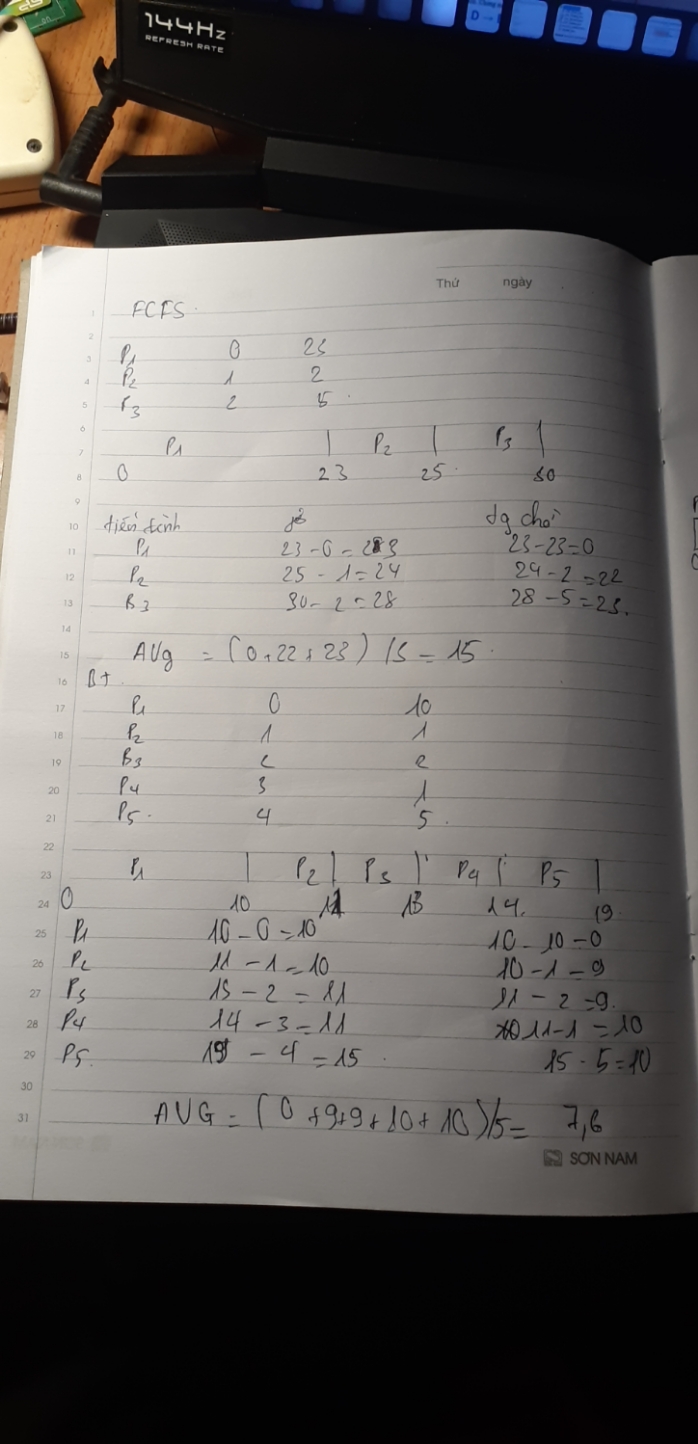 144Hz
REFRESH RATE
D →
Thứ ngày
1 FCFS.
2
3 P1 0 23
4 P2 1 2
5 P3 2 5
6
7 P1 | P2 | P3 |
8 0 23 25 30
9
10 tiến trình tg chờ
11 P1 23-0=23 23-23=0
12 P2 25-1=24 24-2=22
13 P3 30-2=28 28-5=23.
14
15 AVg = (0+22+23)/3=15.
16 BT
17 P1 0 10
18 P2 1 1
19 P3 2 2
20 P4 3 1
21 P5. 4 5.
22
23 P1 | P2 | P3 | P4 | P5 |
24 0 10 11 13 14. 19.
25 P1 10-0=10 10-10=0
26 P2 11-1=10 10-1=9
27 P3 13-2=11 11-2=9.
28 P4 14-3=11 11-1=10
29 P5. 19-4=15. 15-5=10
30
31 AVG = (0+9+9+10+10)/5= 7,6
SƠN NAM